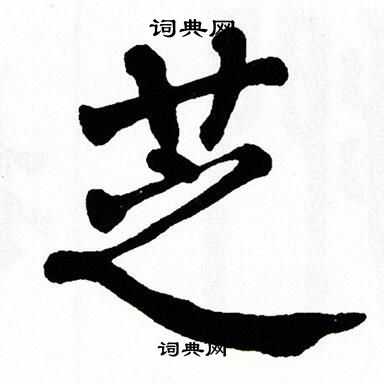 词典网
芝
词典网